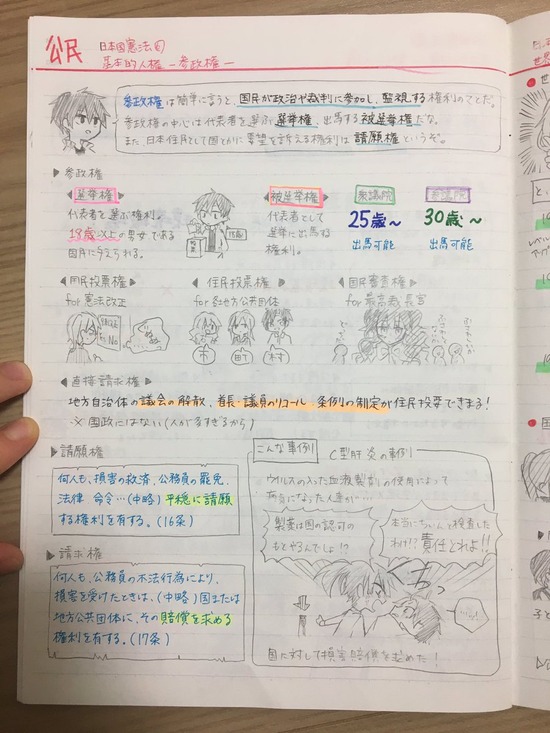 公民
日本国憲法⑰
基本的人権 -参政権-
参政権は簡単に言うと、国民が政治や裁判に参加し、監視する権利のことだ。
参政権の中心は代表者を選ぶ選挙権、出馬する被選挙権だな。
また、日本住民として国とかに要望を訴える権利は請願権というぞ。
▶参政権
◀選挙権▶
代表者を選ぶ権利。
18歳以上の男女である
国民に与えられる。
◀被選挙権▶
代表者として
選挙に出馬する
権利。
衆議院
25歳〜
出馬可能
参議院
30歳〜
出馬可能
◀国民投票権▶
for 憲法改正
No
◀住民投票権▶
for 各地方公共団体
市
町
村
◀国民審査権▶
for 最高裁長官
◀直接請求権▶
地方自治体の議会の解散、首長・議員のリコール、条例の制定が住民投票できる!
※国政にはない(人が多すぎるから)
▶請願権
何人も、損害の救済、公務員の罷免、
法律 命令…(中略)平穏に請願
する権利を有する。(16条)
▶請求権
何人も、公務員の不法行為により、
損害を受けたときは、(中略)国または
地方公共団体に、その賠償を求める
権利を有する。(17条)
こんな事例
C型肝炎の事例
ウイルスの入った血液製剤の使用によって
病気になった人達が…
製薬は国の認可の
もとやるんでしょ!?
本当にちゃんと検査した
わけ!?責任とれよ!!
国に対して損害賠償を求めた!